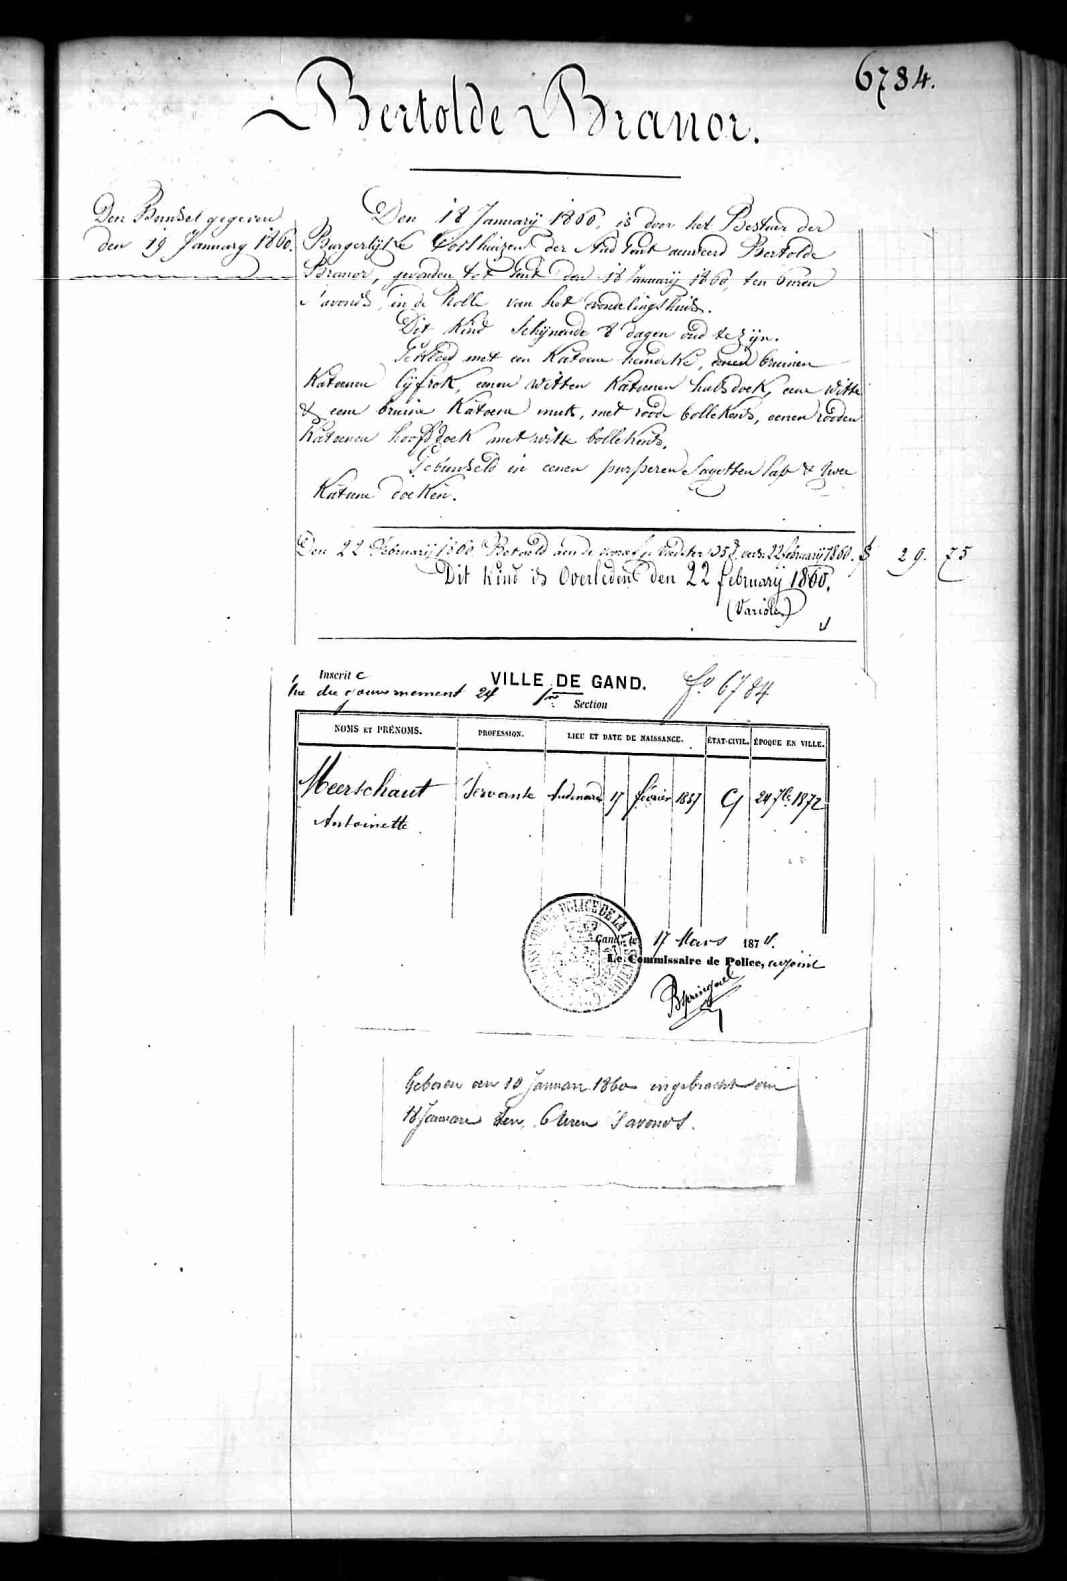 6784.
Bertolde Branor.
Den Bundel gegeven
den 19 January 1860.
Den 18 Januarÿ 1860, is door het Bestuur der
Burgerlÿke Godshuizen der Stad Gent aanveerd Bertolde
Branor, gevonden tot Gent den 18 Januarÿ 1860, ten 6 uren
s'avonds, in de Rolle van het vondelingshuis.
Dit Kind schÿnende 8 dagen oud te zÿn.
Gekleed met een Katoene hemdeke, eenen bruinen
Katoenen lÿfrok, eenen witten Katoenen halsdoek, eene witte
& eene bruine Katoene muts, met roode bollekens, eenen rooden
Katoenen hoofddoek met witte bollekens.
Gebunseld in eenen purperen Sayetten lap & twee
Katoene doeken.
Den 22 Februarÿ 1860 Betaald aan de 22 februarÿ 1860. f 29. 75
Dit kind is Overleden den 22 februarÿ 1860.
(Variole)
Inscrit
rue du gouvernement 24
VILLE DE GAND.
1re Section
fo 6784
NOMS ET PRÉNOMS. PROFESSION. LIEU ET DATE DE NAISSANCE. ÉTAT-CIVIL. ÉPOQUE EN VILLE.
Meerschaut Servante Audenarde 17 février 1857 C 24 7bre 1872
Antoinette
Gand, le 17 Mars 187
Le Commissaire de Police, adjoint
Geboren den 10 Januari 1860 ingebracht den
18 Januari ten 6 Uren 's avonds.